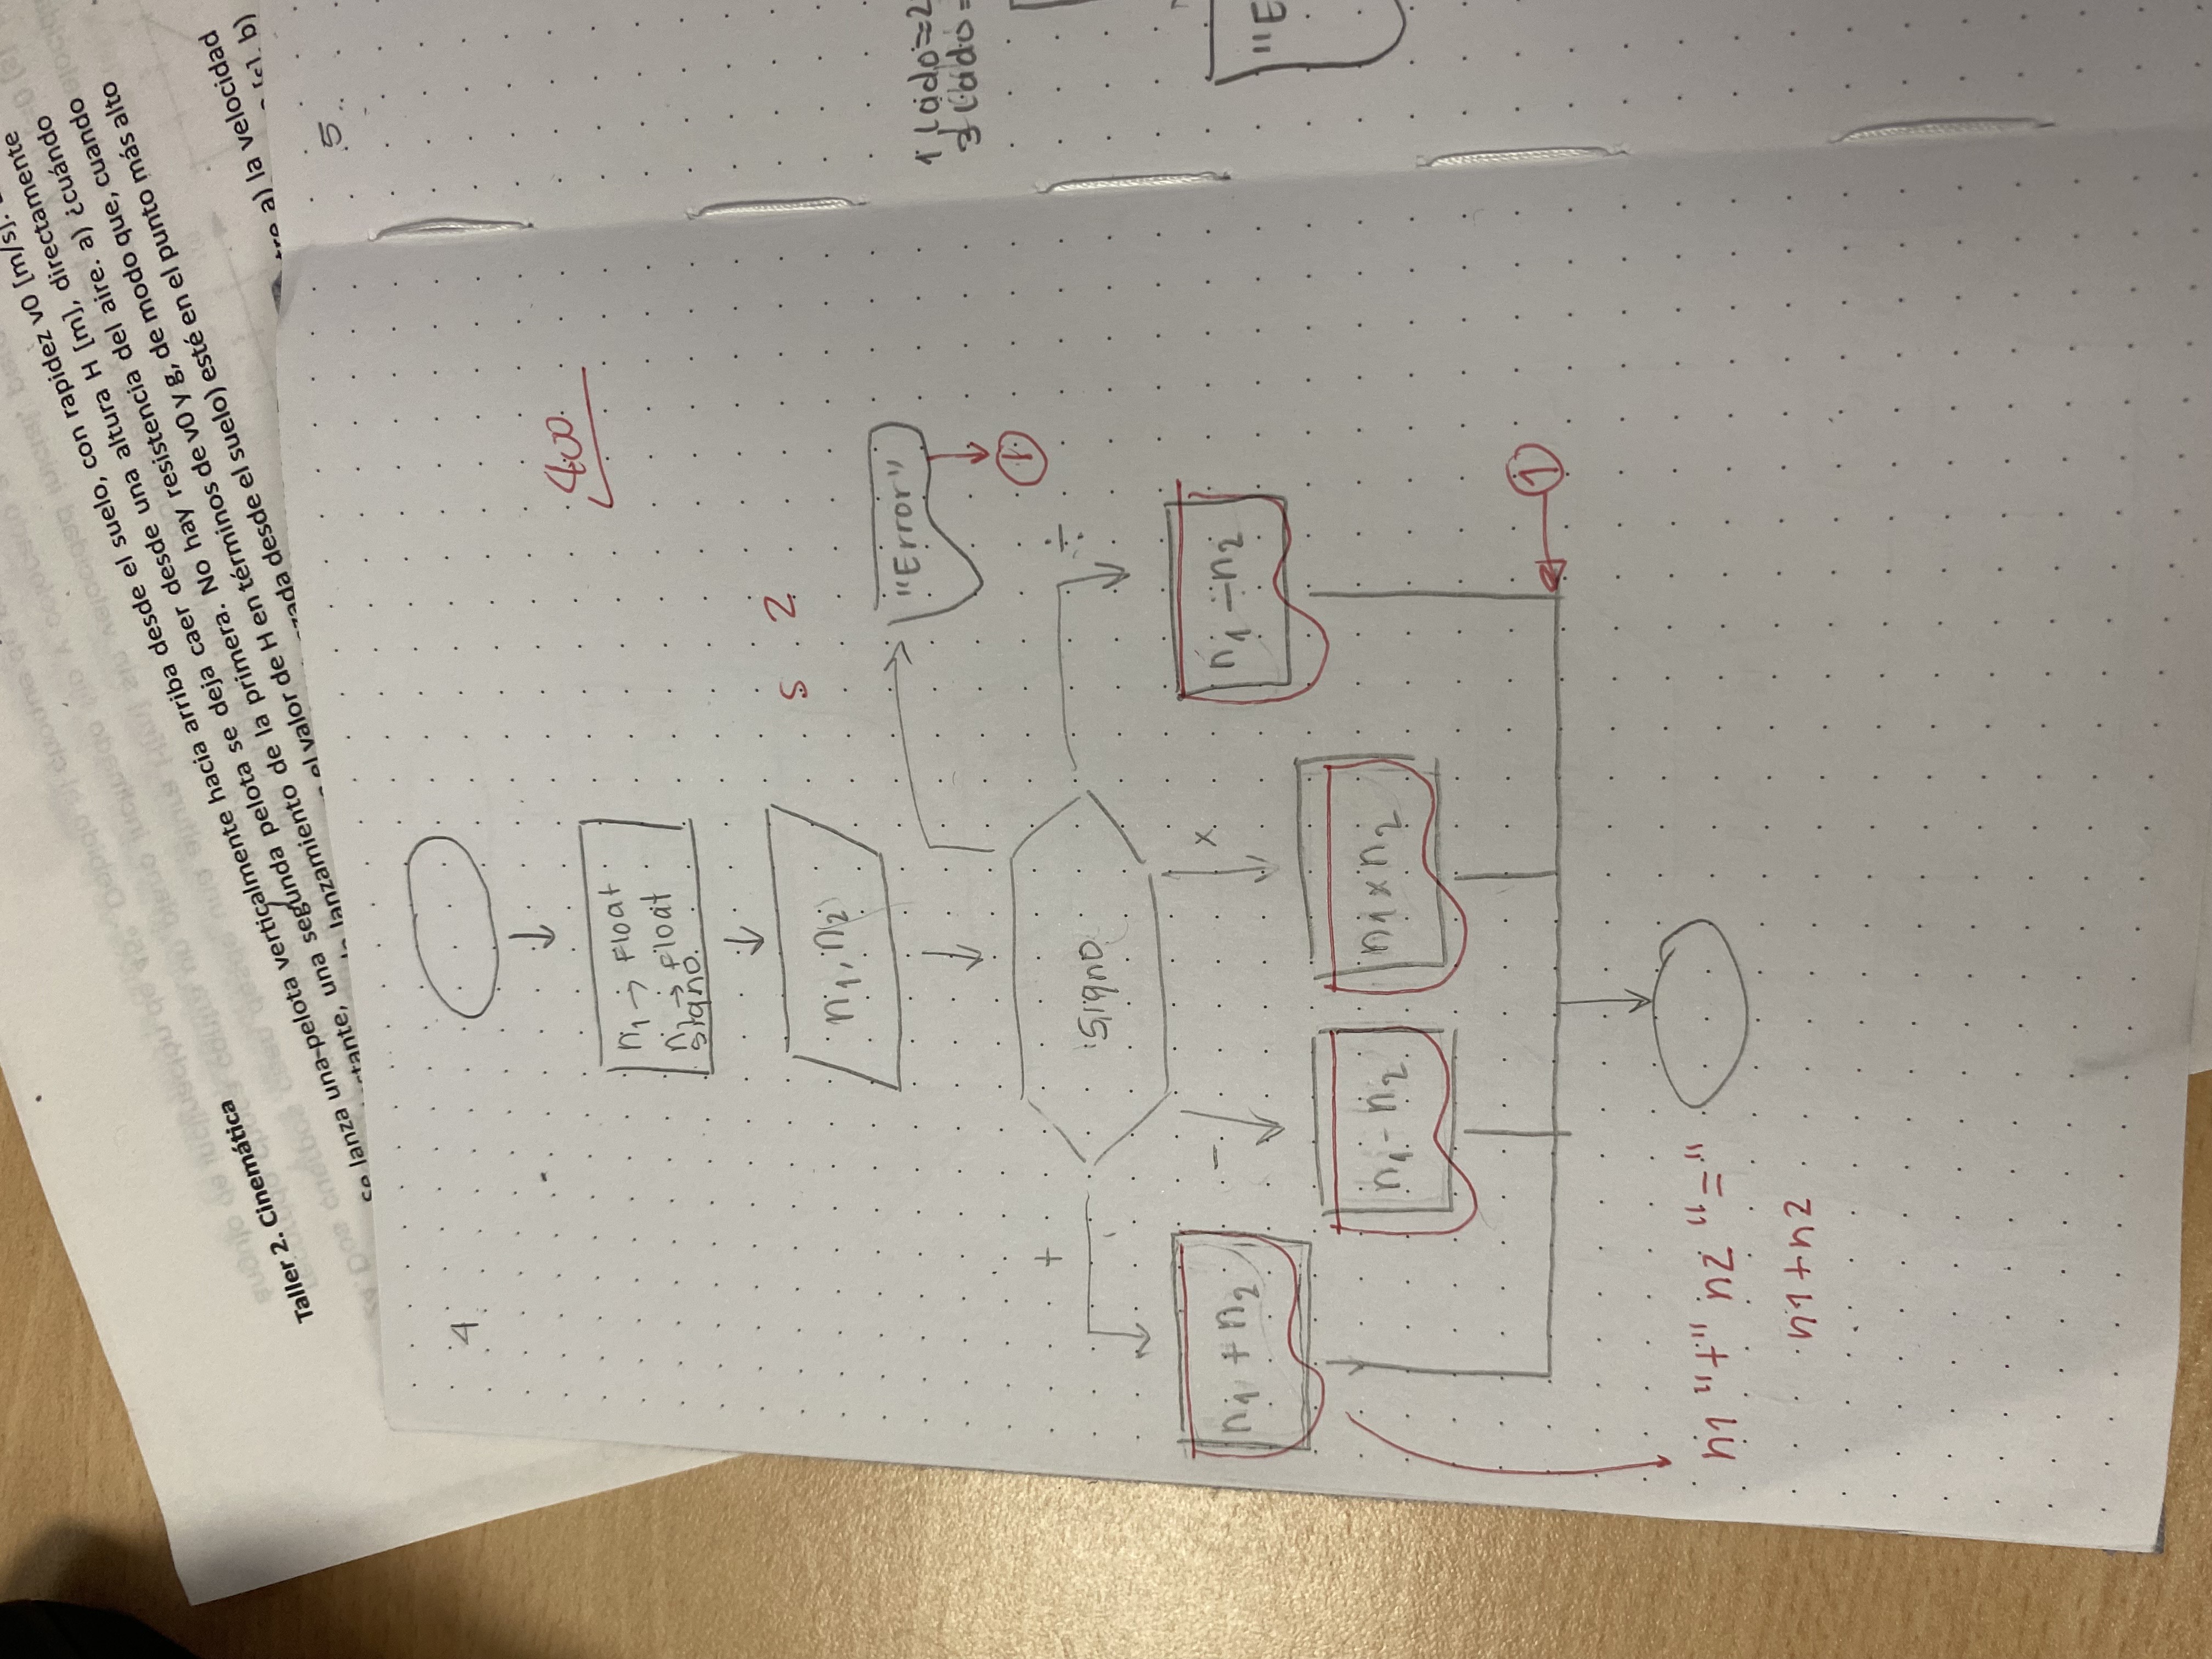 Taller 2. Cinemática
Se lanza una pelota verticalmente hacia arriba desde el suelo, con rapidez v0 [m/s].
una segunda pelota se deja caer desde una altura H [m], directamente
lanzamiento de la primera. No hay resistencia del aire. a) ¿cuándo
el valor de H en términos de v0 y g, de modo que, cuando
desde el suelo) esté en el punto más alto
a) la velocidad
[s]. b)
4
5
n1 → Float
n2 → Float
signo
400
n1, n2
5 2
"Error"
1
1 lado=2
3 lado=
+
signo
÷
n1 + n2
-
x
n1 ÷ n2
"E
n1 - n2
n1 x n2
1
n1 "+" n2 "="
n1+n2